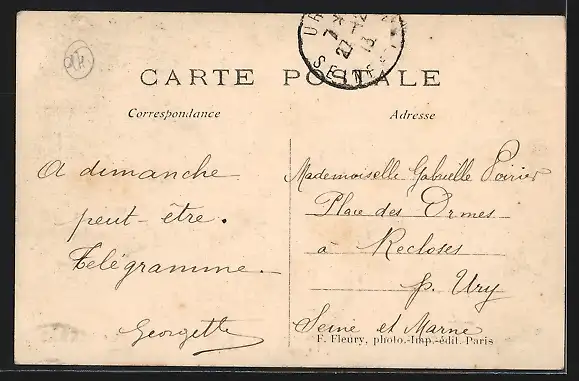 CARTE POSTALE
Correspondance
Adresse
A dimanche
peut-être.
Télégramme.
Georgette
Mademoiselle Gabrielle Poirier
Place des Ormes
à Recloses
p. Ury
Seine et Marne
F. Fleury, photo.-Imp.-édit. Paris